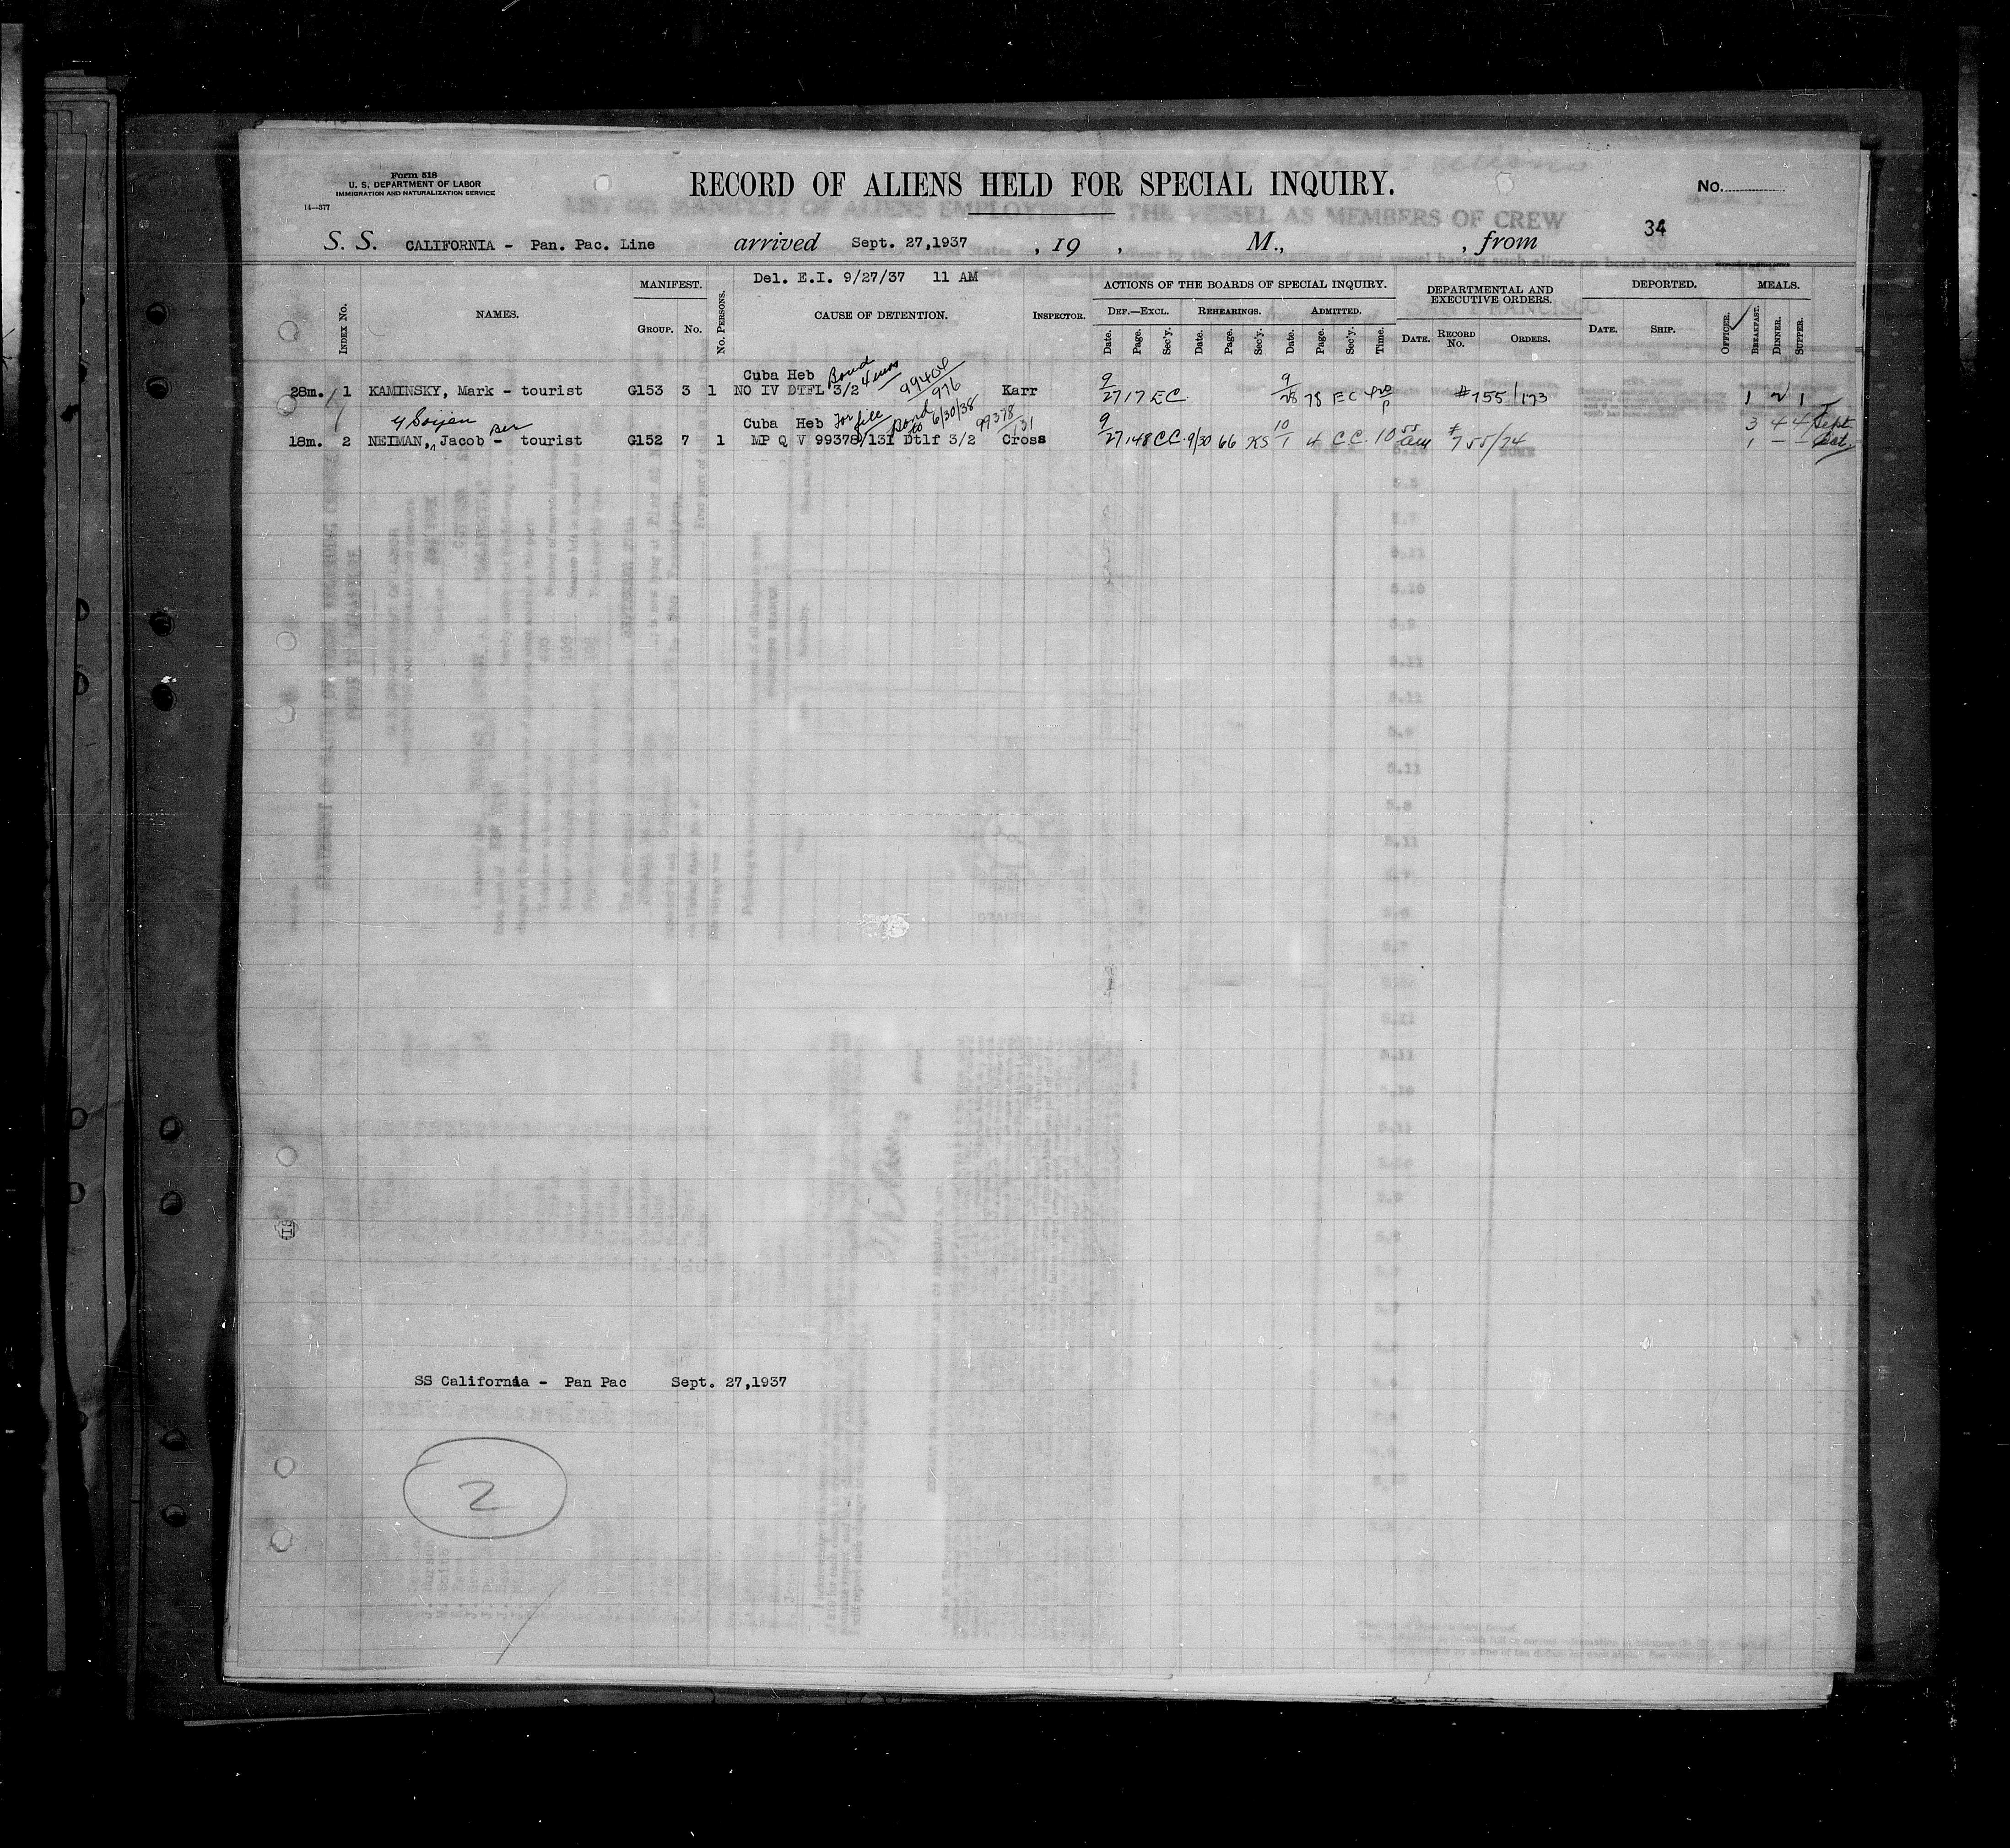 Form 518
U. S. DEPARTMENT OF LABOR
IMMIGRATION AND NATURALIZATION SERVICE
14—377
RECORD OF ALIENS HELD FOR SPECIAL INQUIRY.
No.
34
S. S. CALIFORNIA - Pan. Pac. Line arrived Sept. 27,1937 , 19 , M., , from
Del. E.I. 9/27/37 11 AM
INDEX No. NAMES. MANIFEST. GROUP. No. No. PERSONS. CAUSE OF DETENTION. INSPECTOR.
ACTIONS OF THE BOARDS OF SPECIAL INQUIRY. DEF.—EXCL. REHEARINGS. ADMITTED.
Date. Page. Sec'y. Date. Page. Sec'y. Date. Page. Sec'y. Time.
DEPARTMENTAL AND EXECUTIVE ORDERS. DATE. RECORD No. ORDERS.
DEPORTED. DATE. SHIP. OFFICER.
MEALS. BREAKFAST. DINNER. SUPPER.
Cuba Heb Bond 99404/976
28m. 1 KAMINSKY, Mark - tourist G153 3 1 NO IV DTFL 3/2 Karr 9/27 17 EC 9/28 78 EC #755/173 1 2 1
Cuba Heb Bond to 6/30/38 99378/131
3 4 4 Sept
18m. 2 NEIMAN, Jacob - tourist G152 7 1 MP Q V 99378/131 Dtlf 3/2 Cross 9/27 148 CC 9/30 66 KS 10/1 4 CC 10 55 am #755/74 1 - - Oct
SS California - Pan Pac Sept. 27,1937
2